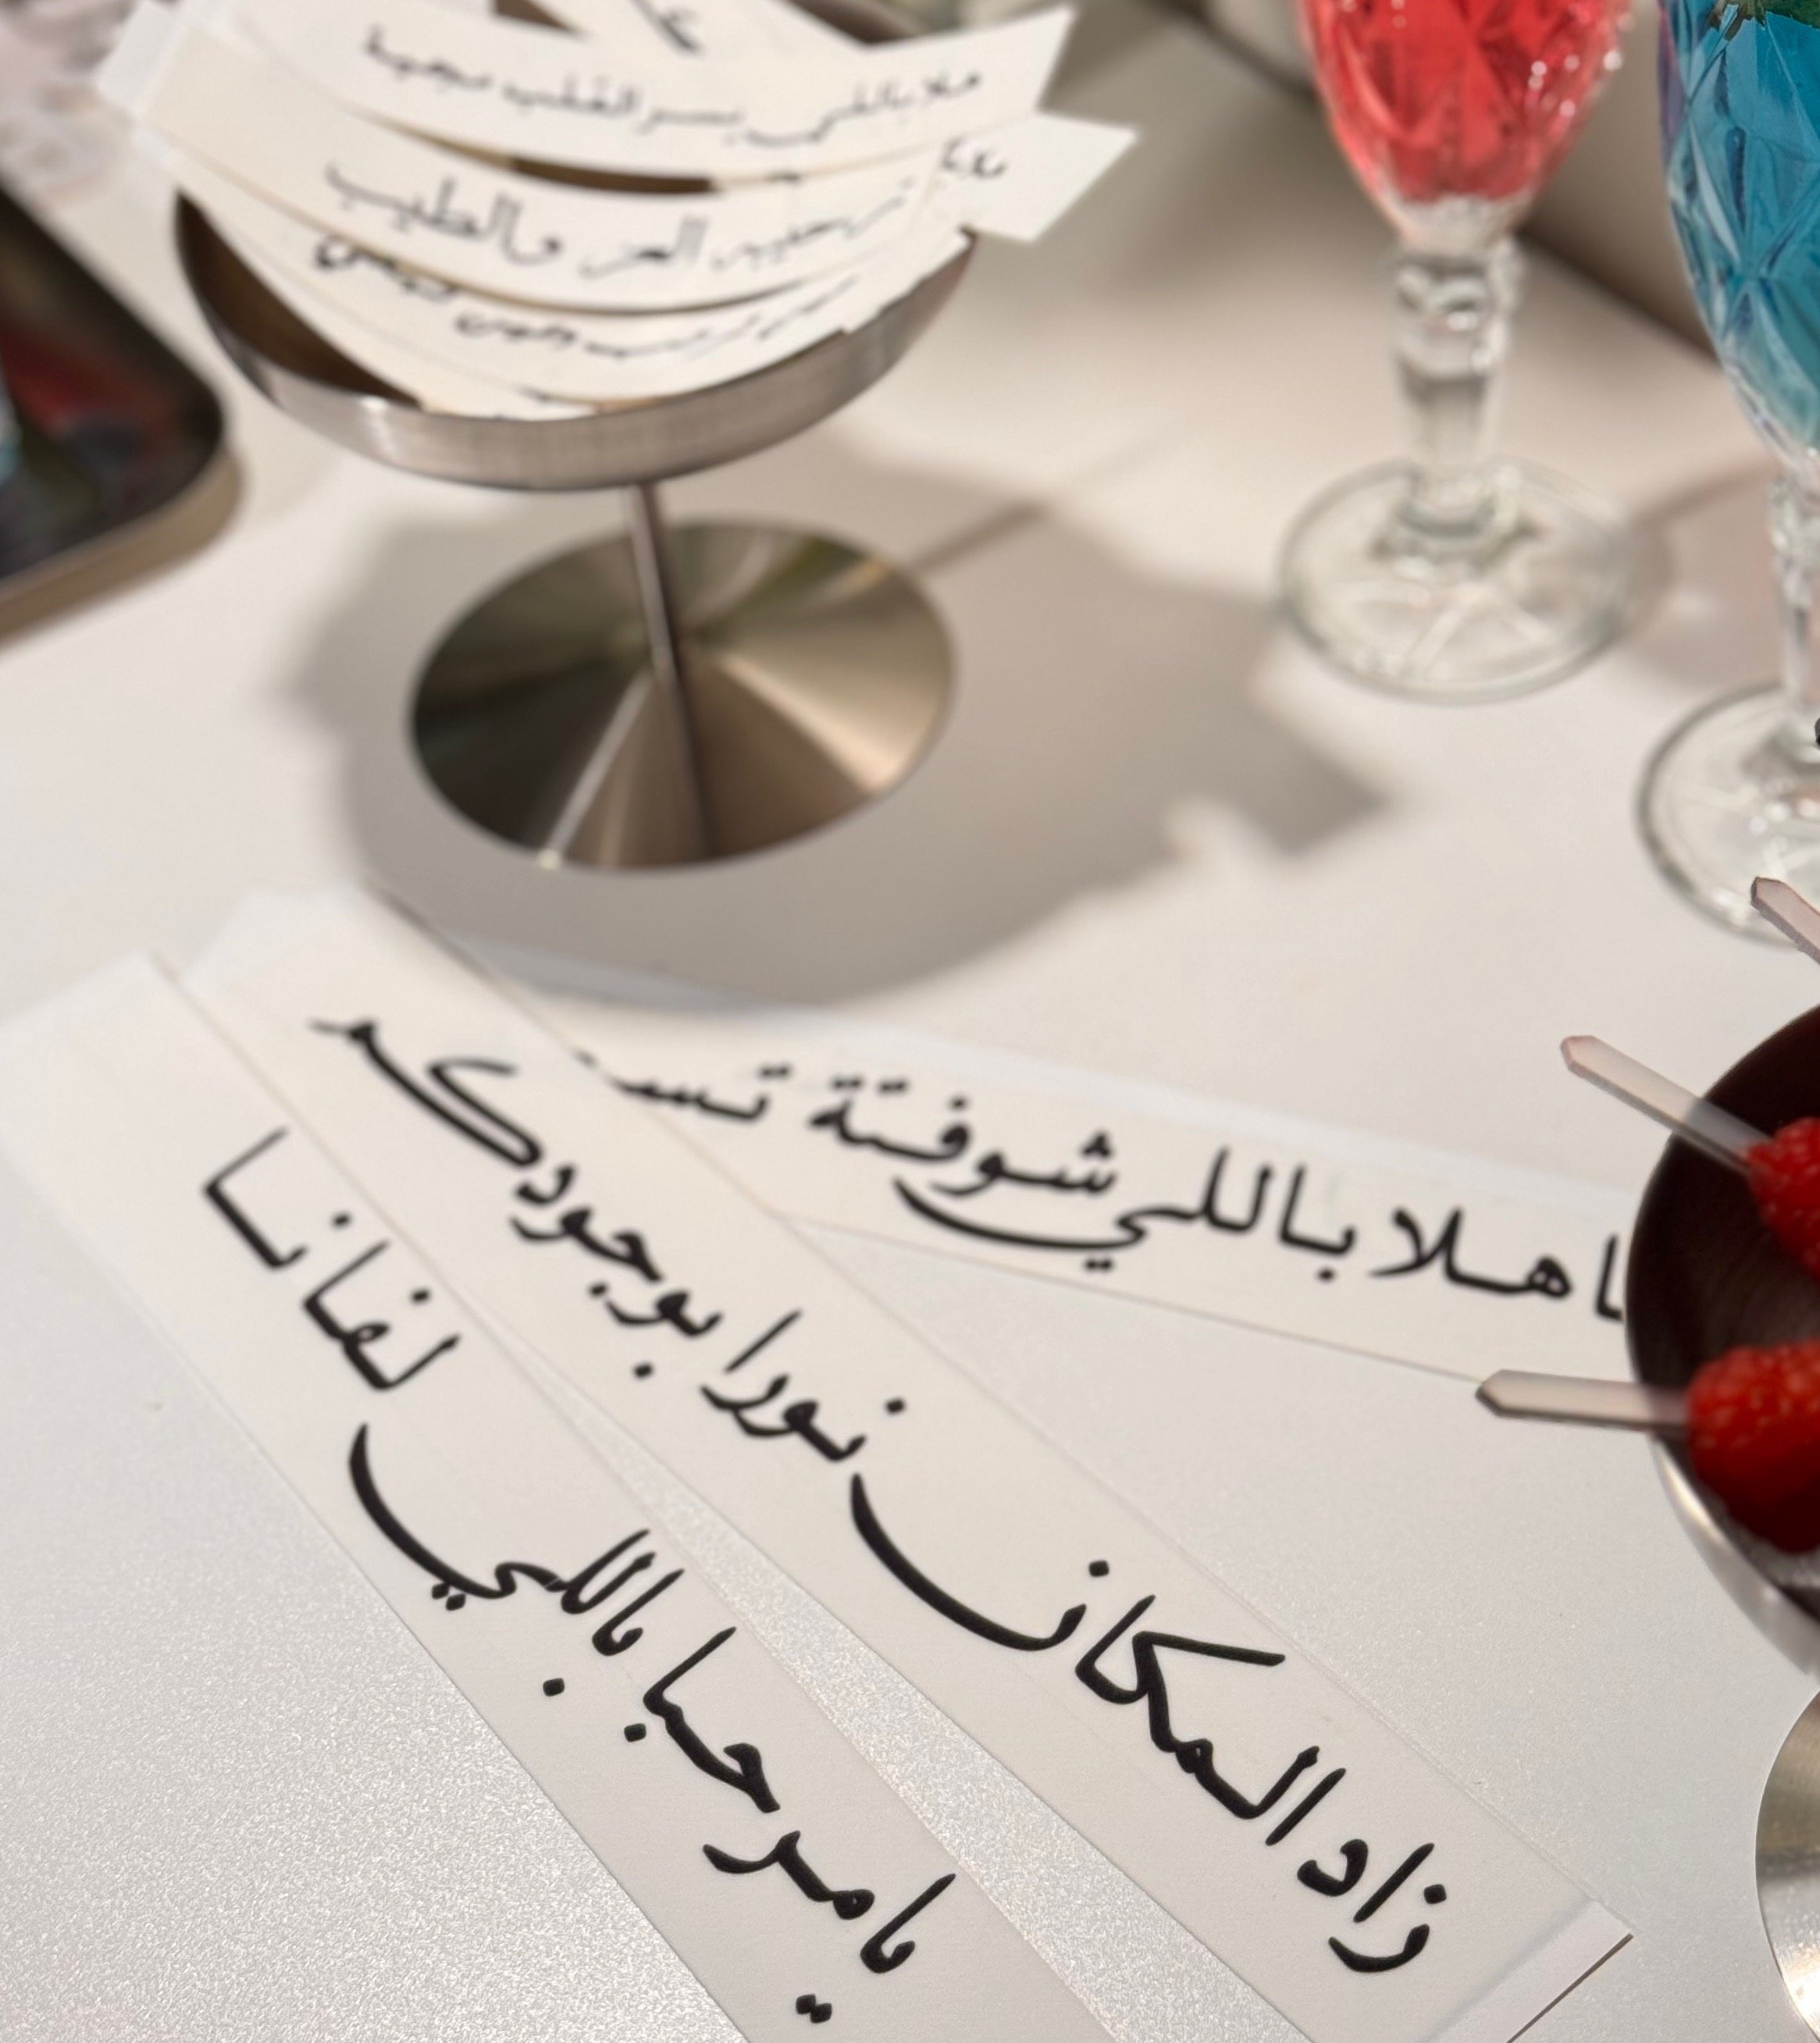 هلا باللي يسر القلب
ترحيب العز والطيب
هلا باللي شوفتة تسـ
زاد المكان نورا بوجودكم
يامرحبا باللي لفانا